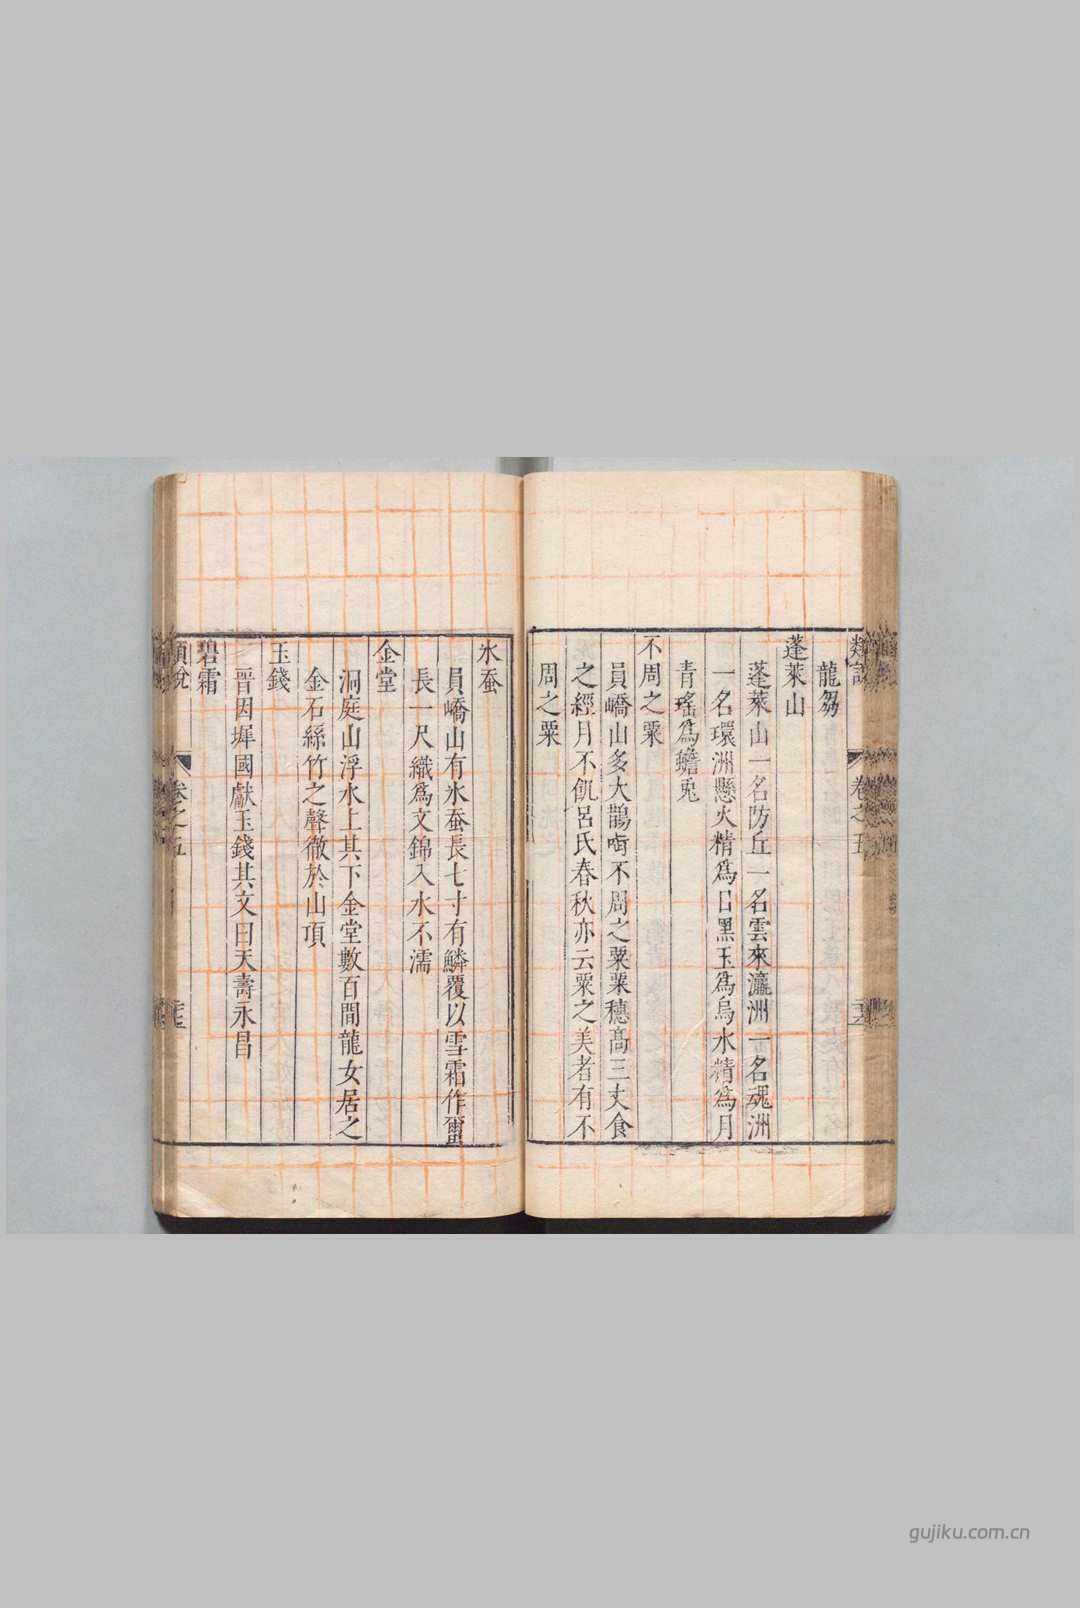 類説 卷之五
龍芻
蓬萊山
蓬萊山一名防丘一名雲來瀛洲一名魂洲
一名環洲懸火精爲日黑玉爲烏水精爲月
青瑤爲蟾兎
不周之粟
員嶠山多大鵲啣不周之粟粟穗髙三丈食
之經月不飢呂氏春秋亦云粟之美者有不
周之粟
氷蚕
員嶠山有氷蚕長七寸有鱗覆以雪霜作蠒
長一尺織爲文錦入水不濡
金堂
洞庭山浮水上其下金堂數百間龍女居之
金石絲竹之聲徹於山頂
玉錢
晉因墀國獻玉錢其文曰天壽永昌
碧霜
類說 卷之五
gujiku.com.cn